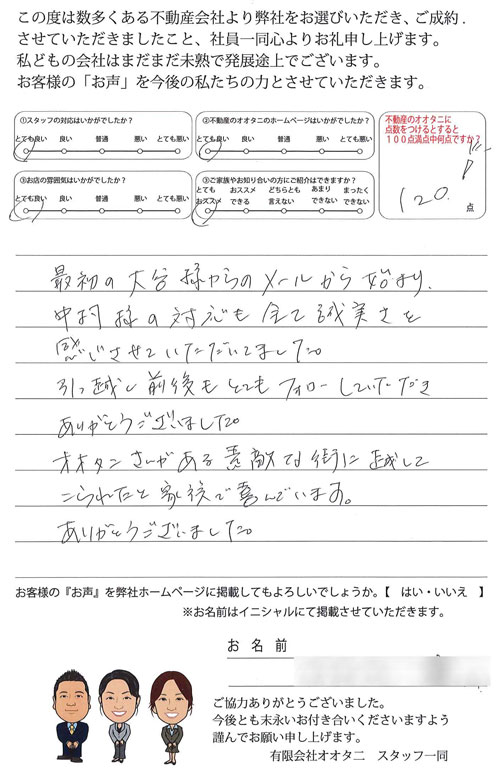 この度は数多くある不動産会社より弊社をお選びいただき、ご成約.
させていただきましたこと、社員一同心よりお礼申し上げます。
私どもの会社はまだまだ未熟で発展途上でございます。
お客様の「お声」を今後の私たちの力とさせていただきます。
①スタッフの対応はいかがでしたか?
とても良い 良い 普通 悪い とても悪い
②不動産のオオタニのホームページはいかがでしたか?
とても良い 良い 普通 悪い とても悪い
③お店の雰囲気はいかがでしたか?
とても良い 良い 普通 悪い とても悪い
③ご家族やお知り合いの方にご紹介はできますか?
とても オススメ どちらとも あまり まったく
おススメ できる 言えない できない できない
不動産のオオタニに
点数をつけるとすると
100点満点中何点ですか?
120. 点
最初の大谷様からのメールから始まり、
中村様の対応も全て誠実さを
感じさせていただいてました。
引っ越し前後もとてもフォローしていただき
ありがとうございました。
オオタニさんがある素敵な街に越して
こられたと家族で喜んでいます。
ありがとうございました。
お客様の『お声』を弊社ホームページに掲載してもよろしいでしょうか。【 はい・いいえ 】
※お名前はイニシャルにて掲載させていただきます。
お 名 前
ご協力ありがとうございました。
今後とも末永いお付き合いくださいますよう
謹んでお願い申し上げます。
有限会社オオタニ スタッフ一同